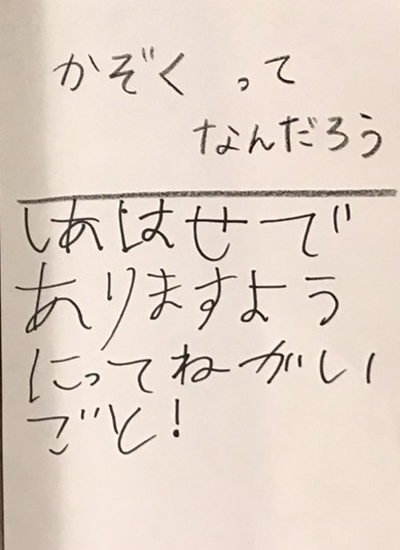 かぞく って
なんだろう
しあはせで
ありますよう
にってねがい
ごと!